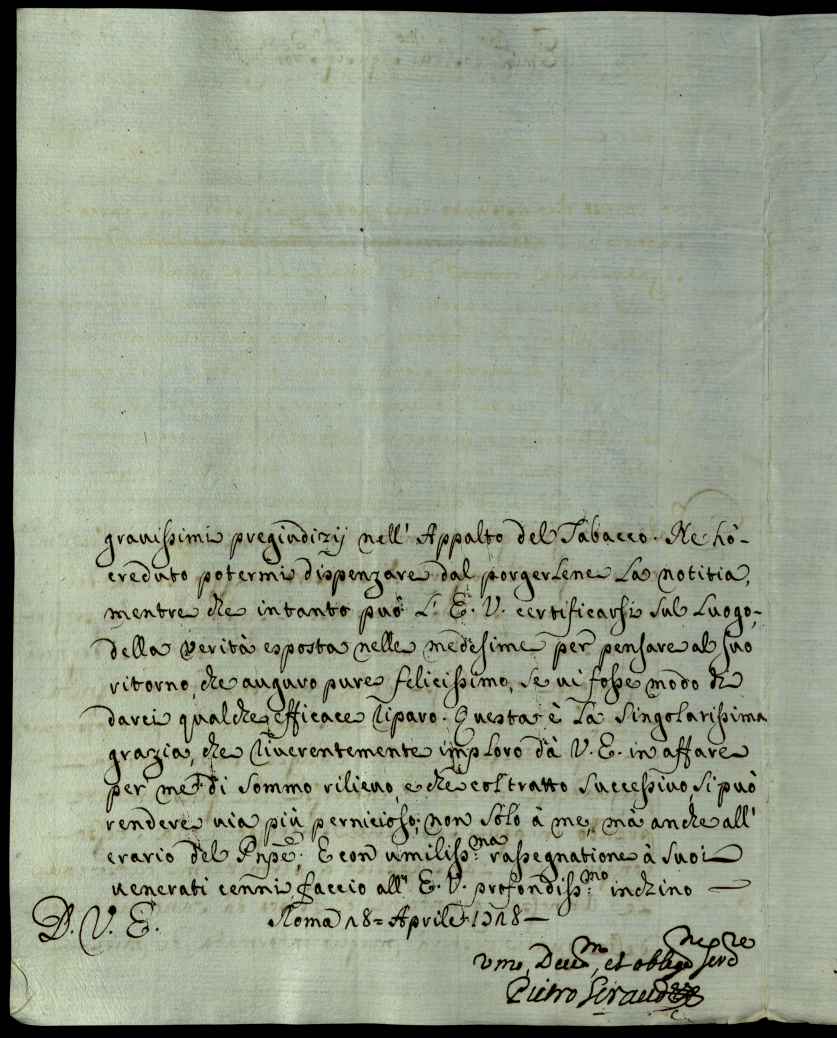 gravissimi pregiudizij nell' Appalto del Tabacco. Ne hò
creduto potermi dispenzare dal porgerlene la notitia,
mentre che intanto può l' E. V. certificarsi sul luogo
della verità esposta nelle medesime per pensare al suo
ritorno, che auguro pure felicissimo, se vi fosse modo di
darci qualche efficace riparo. Questa è la singolarissima
grazia, che riverentemente imploro dà V. E. in affare
per me di sommo rilievo, e che col tratto successivo, si può
rendere via più pernicioso, non solo à me, mà anche all'
erario del Pnpe; E con umiliss.ma rassegnatione à suoi
venerati cenni faccio all' E. V. profondiss.mo inchino
D. V. E. Roma 18 Aprile 1718
Pietro Giraud